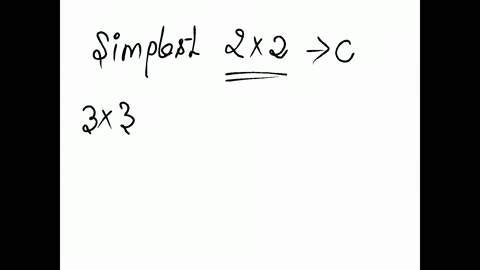 Simplest 2×2 → C
3×3